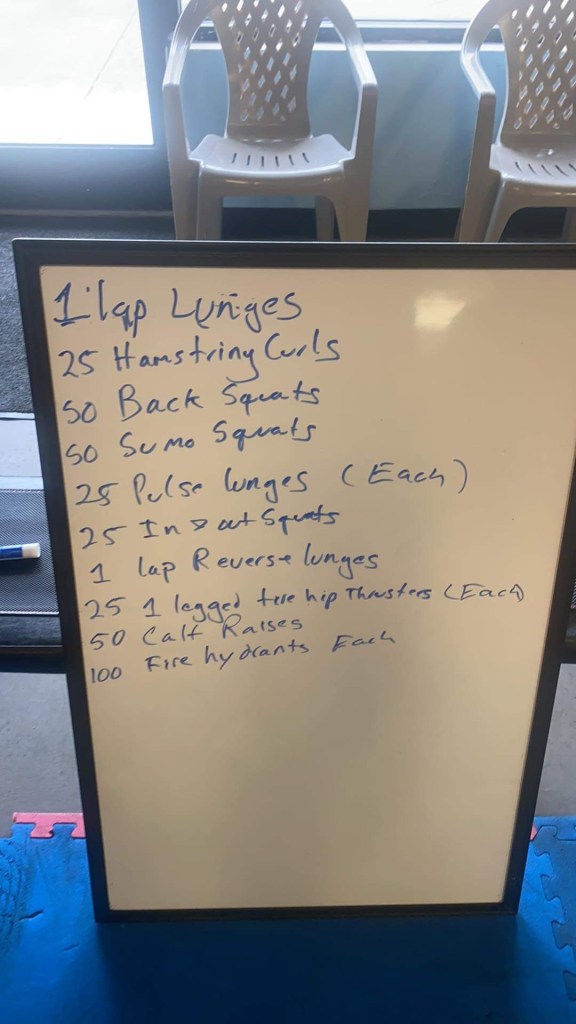 1 lap Lunges
25 Hamstring Curls
50 Back Squats
50 Sumo Squats
25 Pulse lunges (Each)
25 In & out Squats
1 lap Reverse lunges
25 1 legged tire hip Thrusters (Each)
50 Calf Raises
100 Fire hydrants Each